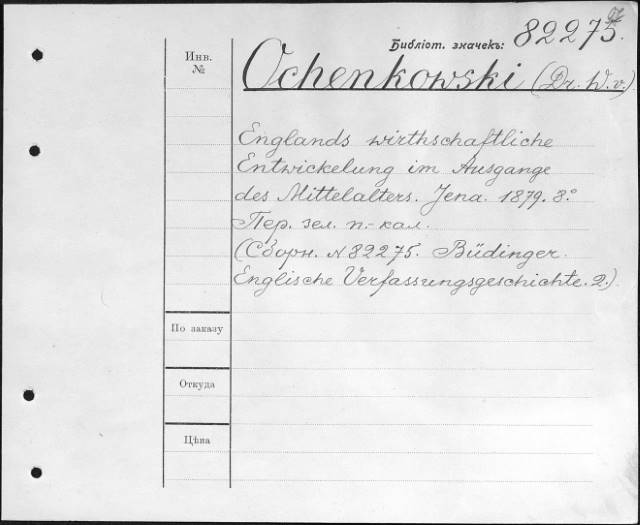 Библіот. значекъ: 82275.
Инв.
№
Ochenkowski (Dr. W. v.)
Englands wirthschaftliche
Entwickelung im Ausgange
des Mittelalters. Jena. 1879. 8.°
Пер. зел. п.-кал.
(Сборн. № 82275. Büdinger.
Englische Verfassungsgeschichte. 2.)
По заказу
Откуда
Цѣна